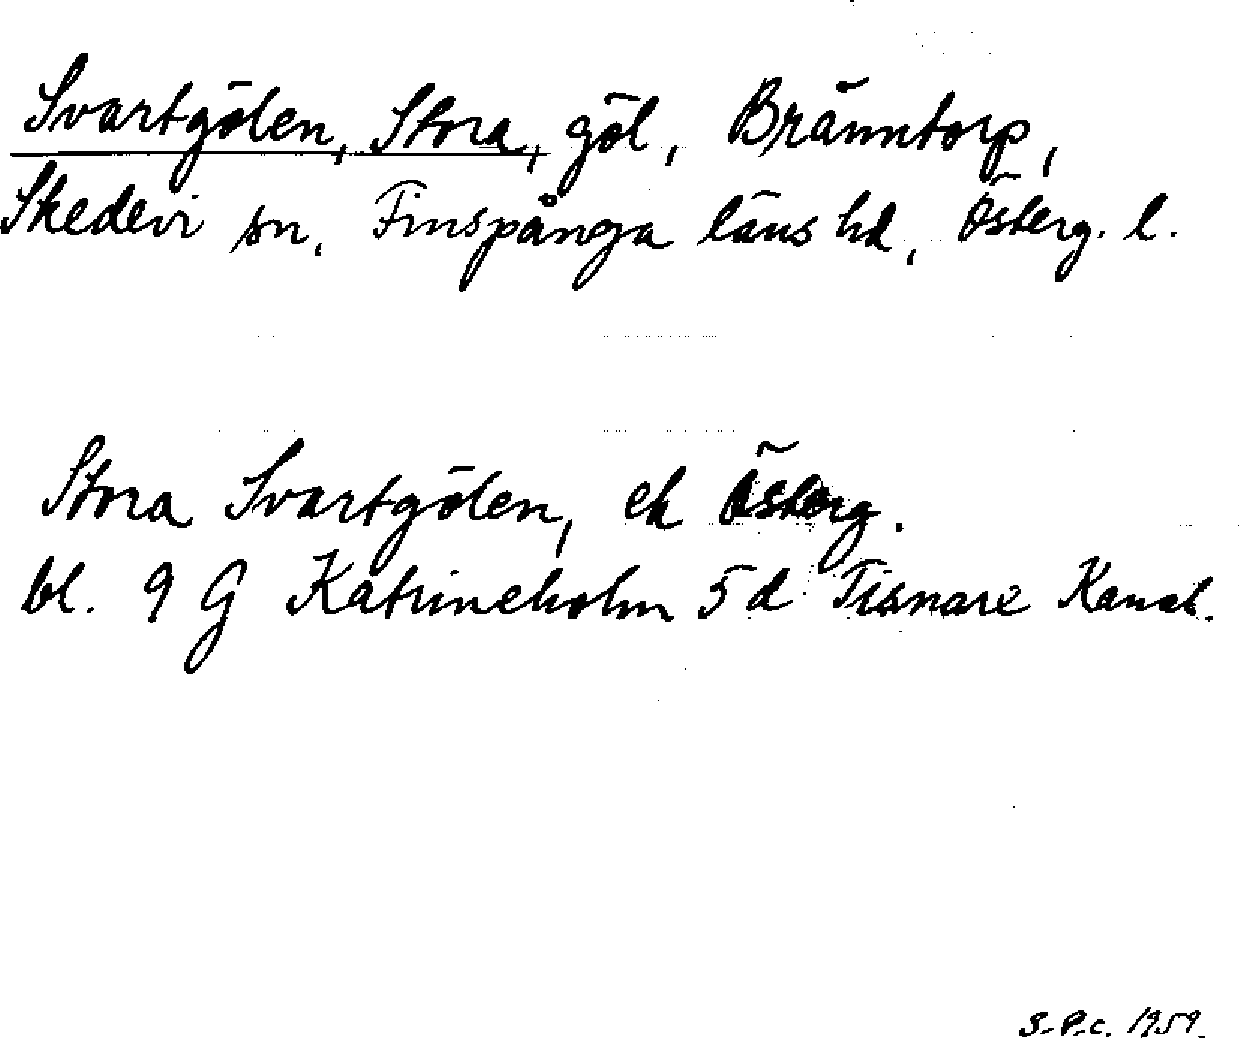 Svartgölen, Stora, göl, Bränntorp,
Skedevi sn, Finspånga läns hd, Österg. l.
Stora Svartgölen, ek Österg.
bl. 9 G Katrineholm 5 d Tisnare Kanal.
S-P-c. 1959.